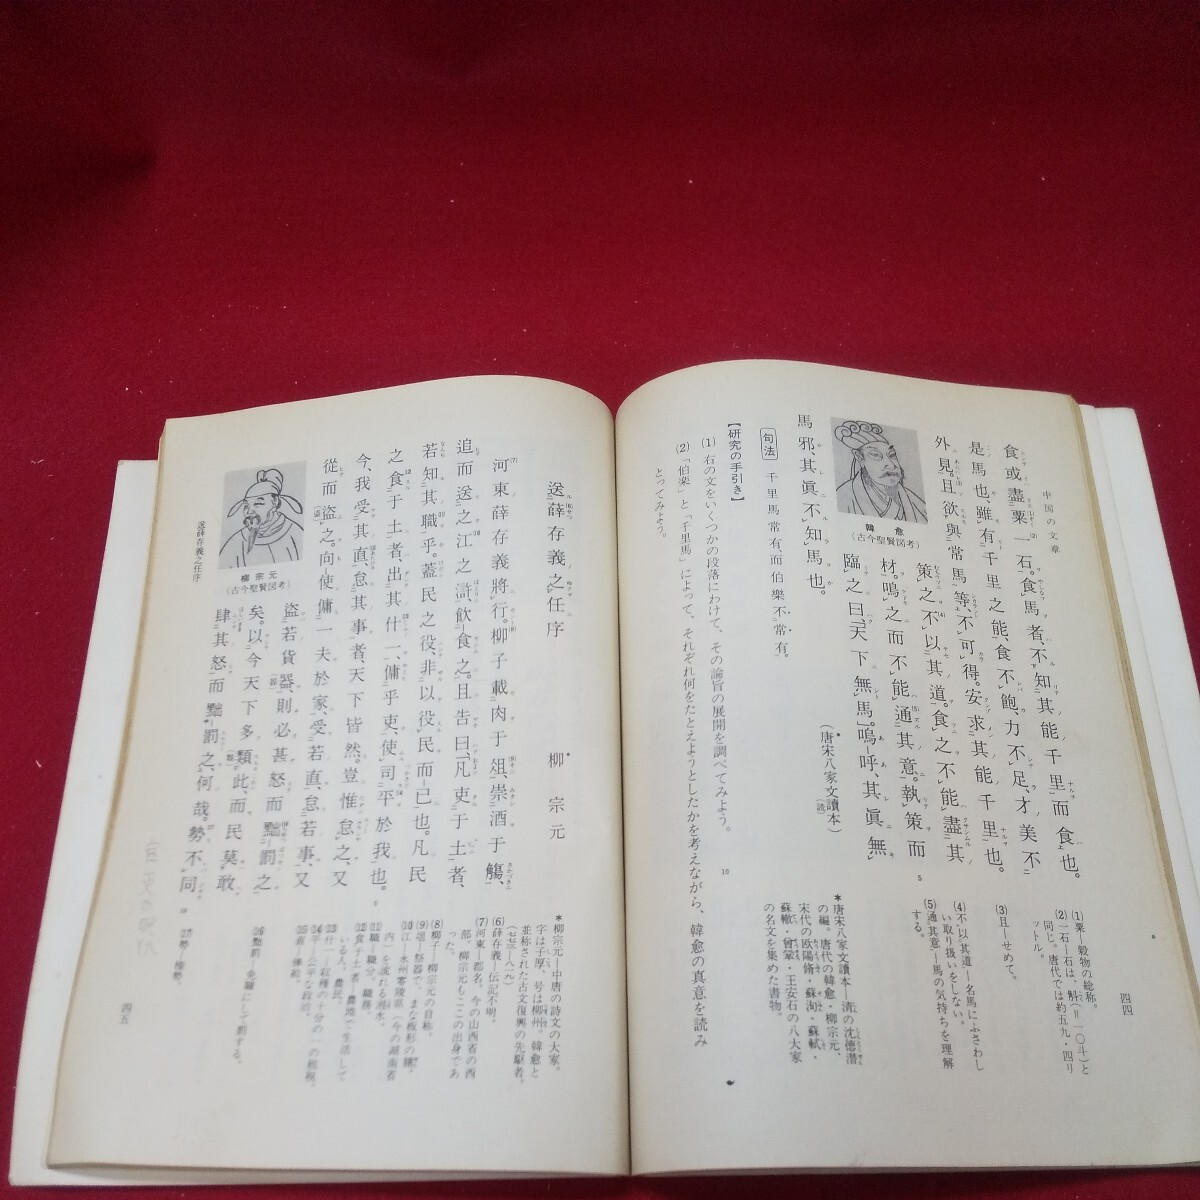 中国の文章
食或盡粟一石。食馬者、不知其能千里而食也。
是馬也、雖有千里之能、食不飽、力不足、才美不
外見。且欲與常馬等、不可得。安求其能千里也。
策之不以其道。食之不能盡其
材。鳴之而不能通其意。執策而
臨之曰、天下無馬。嗚呼、其眞無
馬邪、其眞不知馬也。
(唐宋八家文讀本)
韓愈
(古今聖賢図考)
句法
千里馬常有、而伯樂不常有。
【研究の手引き】
(1) 右の文をいくつかの段落にわけて、その論旨の展開を調べてみよう。
(2) 「伯楽」と「千里馬」によって、それぞれ何をたとえようとしたかを考えながら、韓愈の真意を読み
とってみよう。
5
10
(1) 粟―穀物の総称。
(2) 一石―石は、斛(=一〇斗)と
同じ。唐代では約五九・四リ
ットル。
(3) 且―せめて。
(4) 不以其道―名馬にふさわし
い取り扱いをしない。
(5) 通其意―馬の気持ちを理解
する。
*唐宋八家文讀本―清の沈徳潜
の編。唐代の韓愈・柳宗元、
宋代の欧陽脩・蘇洵・蘇軾・
蘇轍・曾鞏・王安石の八大家
の名文を集めた書物。
四四
送薛存義之任序
柳宗元
河東薛存義將行。柳子載肉于俎、崇酒于觴、
追而送之江之滸、飲食之。且告曰、凡吏于土者、
若知其職乎。蓋民之役、非以役民而已也。凡民
之食于土者、出其什一、傭乎吏、使司平於我也。
今、我受其直、怠其事者、天下皆然。豈惟怠之、又
從而盜之。向使傭一夫於家、受若直、怠若事、又
盜若貨器、則必甚怒而黜罰之
矣。以今天下多類此、而民莫敢
肆其怒而黜罰之、何哉。勢不同
柳宗元
(古今聖賢図考)
*柳宗元―中唐の詩文の大家。
字は子厚、号は柳州。韓愈と
並称された古文復興の先駆者。
(七七三―八一九)
(6) 薛存義―伝記不明。
(7) 河東―郡名。今の山西省の西
部。柳宗元もここの出身であ
った。
(8) 柳子―柳宗元の自称。
(9) 俎―祭器で、まな板形の膳。
(10) 江―永州零陵県(今の湖南省
内)を流れる湘水。
(11) 職―職分。職務。
(12) 食于土者―農地で生活して
いる人。農民。
(13) 什一―収穫の十分の一の租税。
(14) 平―公平な政治。
(15) 直―俸給。
(16) 黜罰―免職にして罰する。
(17) 勢―権勢。
送薛存義之任序
四五